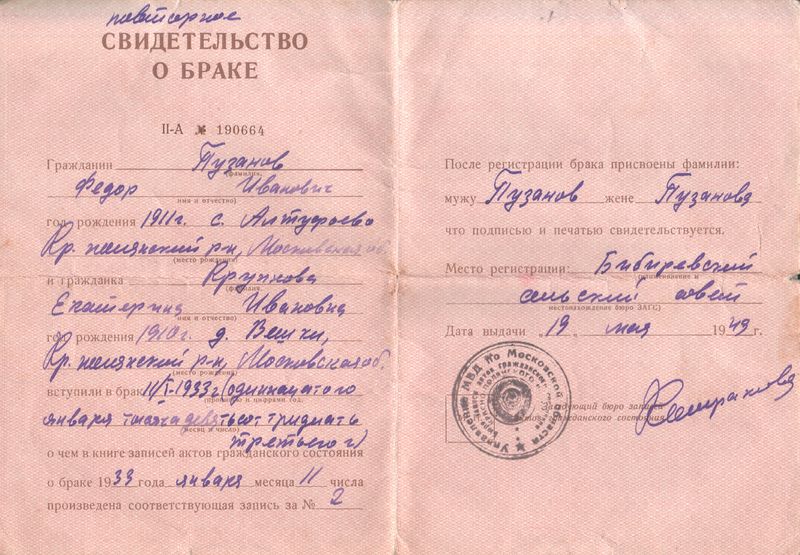 повторное
СВИДЕТЕЛЬСТВО
О БРАКЕ
II-А № 190664
Гражданин Пузанов
фамилия,
Федор Иванович
имя и отчество)
год рождения 1911г. с. Алтуфьево
Кр. полянский р-н, Московская об.
(место рождения)
и гражданка Крупнова
(фамилия,
Екатерина Ивановна
имя и отчество)
год рождения 1910г. д. Вешки,
Кр. полянский р-н, Московская об.
(место рождения)
вступили в брак 11/I-1933г (одиннадцатого
и цифрами год,
января тысяча девятьсот тридцать
(месяц и число)
третьего г)
о чем в книге записей актов гражданского состояния
о браке 1933 года января месяца 11 числа
произведена соответствующая запись за № 2
После регистрации брака присвоены фамилии:
мужу Пузанов жене Пузанова
что подписью и печатью свидетельствуется.
Место регистрации: Бибиревский
(наименование и
сельский совет
местонахождение бюро ЗАГС)
Дата выдачи „19" мая 1949 г.
Управление МВД по Московской области
бюро записи
гражданского состояния